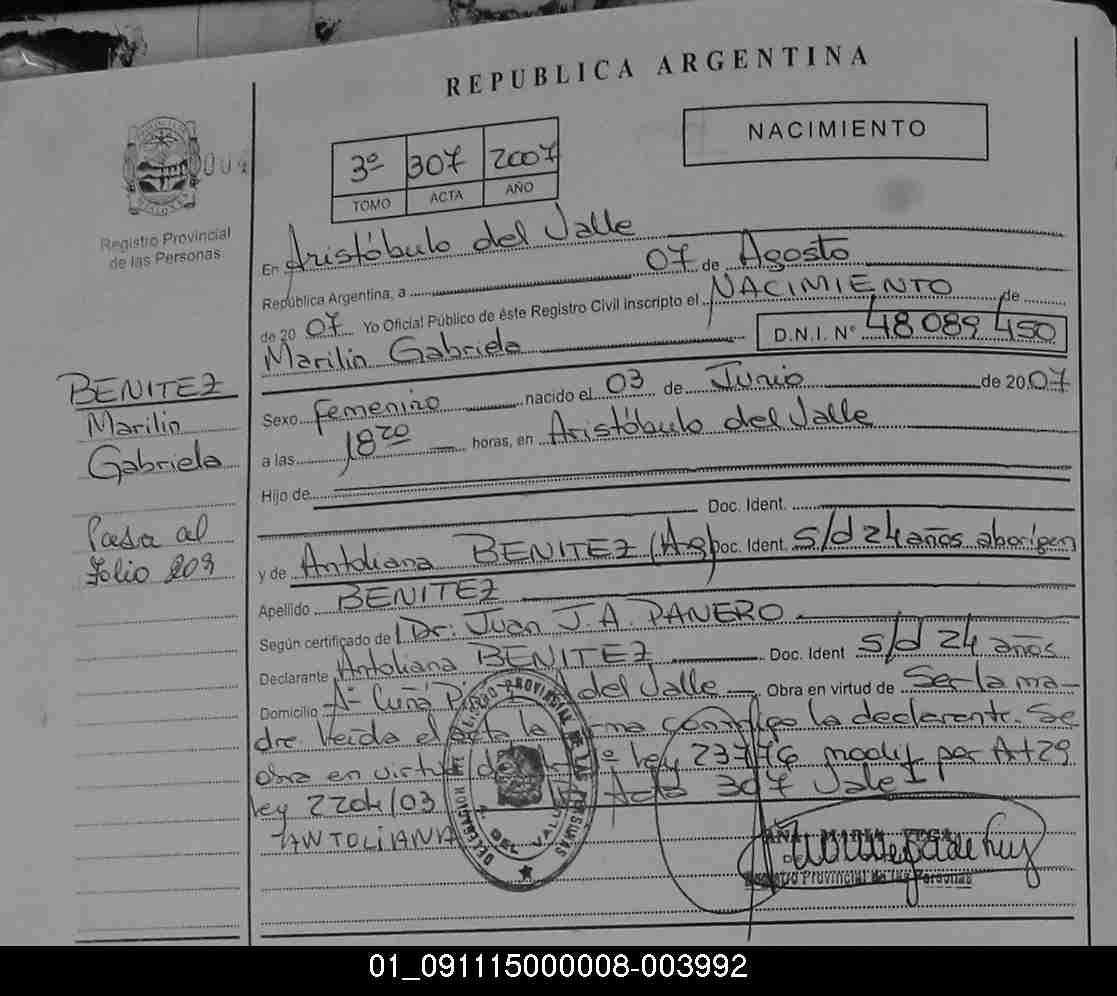 REPUBLICA ARGENTINA
NACIMIENTO
3º 307 2007
TOMO ACTA AÑO
Registro Provincial
de las Personas
En Aristóbulo del Valle
República Argentina, a 07 de Agosto
de 2007 Yo Oficial Público de éste Registro Civil inscripto el NACIMIENTO de
Marilin Gabriela D.N.I. Nº 48 089 450
BENITEZ
Marilin
Gabriela
Pasa al
folio 209
Sexo femenino nacido el 03 de Junio de 2007
a las 18 20 horas, en Aristóbulo del Valle
Hijo de
Doc. Ident.
y de Antoliana BENITEZ (Ag) Doc. Ident. s/d 24 años aborigen
Apellido BENITEZ
Según certificado de Dr: Juan J.A. PANERO
Declarante Antoliana BENITEZ Doc. Ident s/d 24 años
Domicilio Aº Cuña A del Valle Obra en virtud de Ser la ma-
dre. Leida el acta la firma conmigo la declarante. Se
obra en virtud ley 23776 modif por Art 29
ley 2204/03 Acta 307 Vale
ANTOLIANA
REGISTRO PROVINCIAL DE LAS PERSONAS
DELEGACION A. DEL VALLE
Registro Provincial de las Personas
01_091115000008-003992